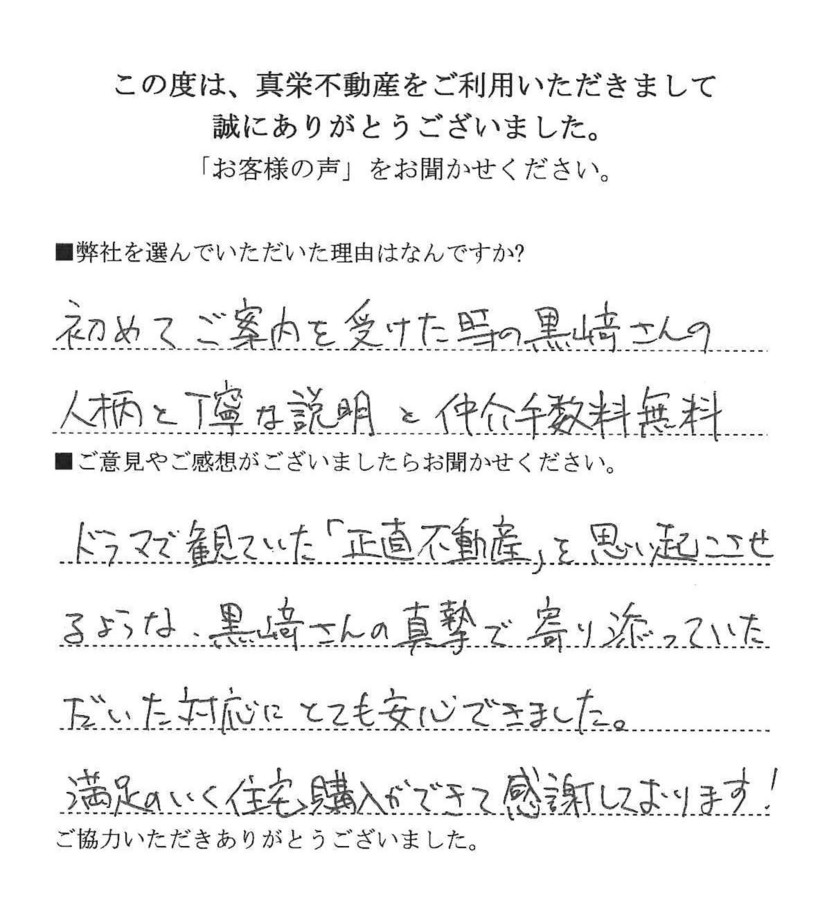 この度は、真栄不動産をご利用いただきまして
誠にありがとうございました。
「お客様の声」をお聞かせください。
■弊社を選んでいただいた理由はなんですか?
初めてご案内を受けた時の黒﨑さんの
人柄と丁寧な説明と仲介手数料無料
■ご意見やご感想がございましたらお聞かせください。
ドラマで観ていた「正直不動産」を思い起こさせ
るような、黒﨑さんの真摯で寄り添っていた
だいた対応にとても安心できました。
満足のいく住宅購入ができて感謝しております!
ご協力いただきありがとうございました。